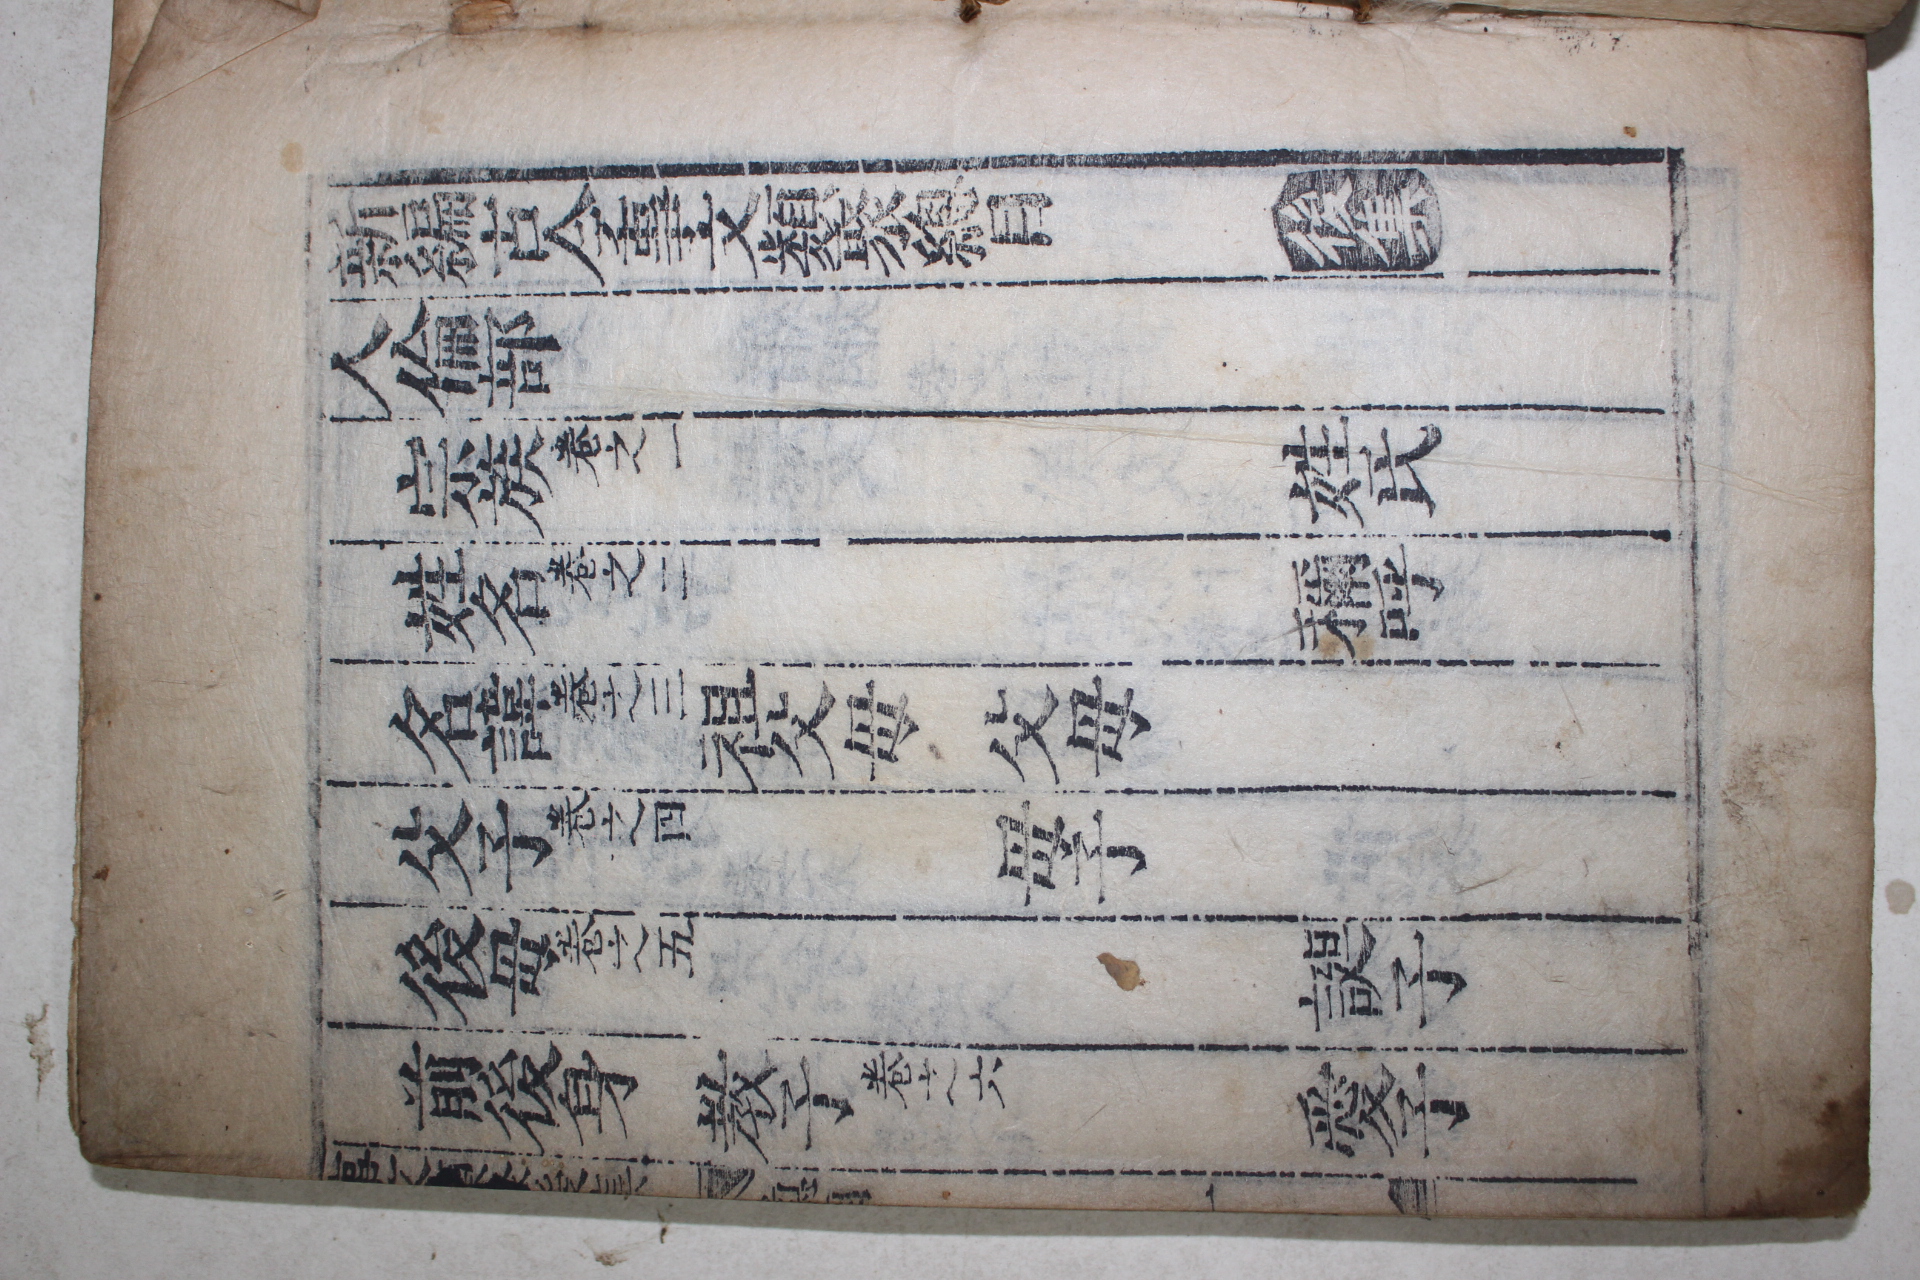 新編古今事文類聚緫目 後集
人倫部
宗族卷之一 姓氏
姓名卷之二 稱呼
名諱卷之三 祖父母 父母
父子卷之四 母子
後母卷之五 誕子
前後身 敎子卷之六 愛子